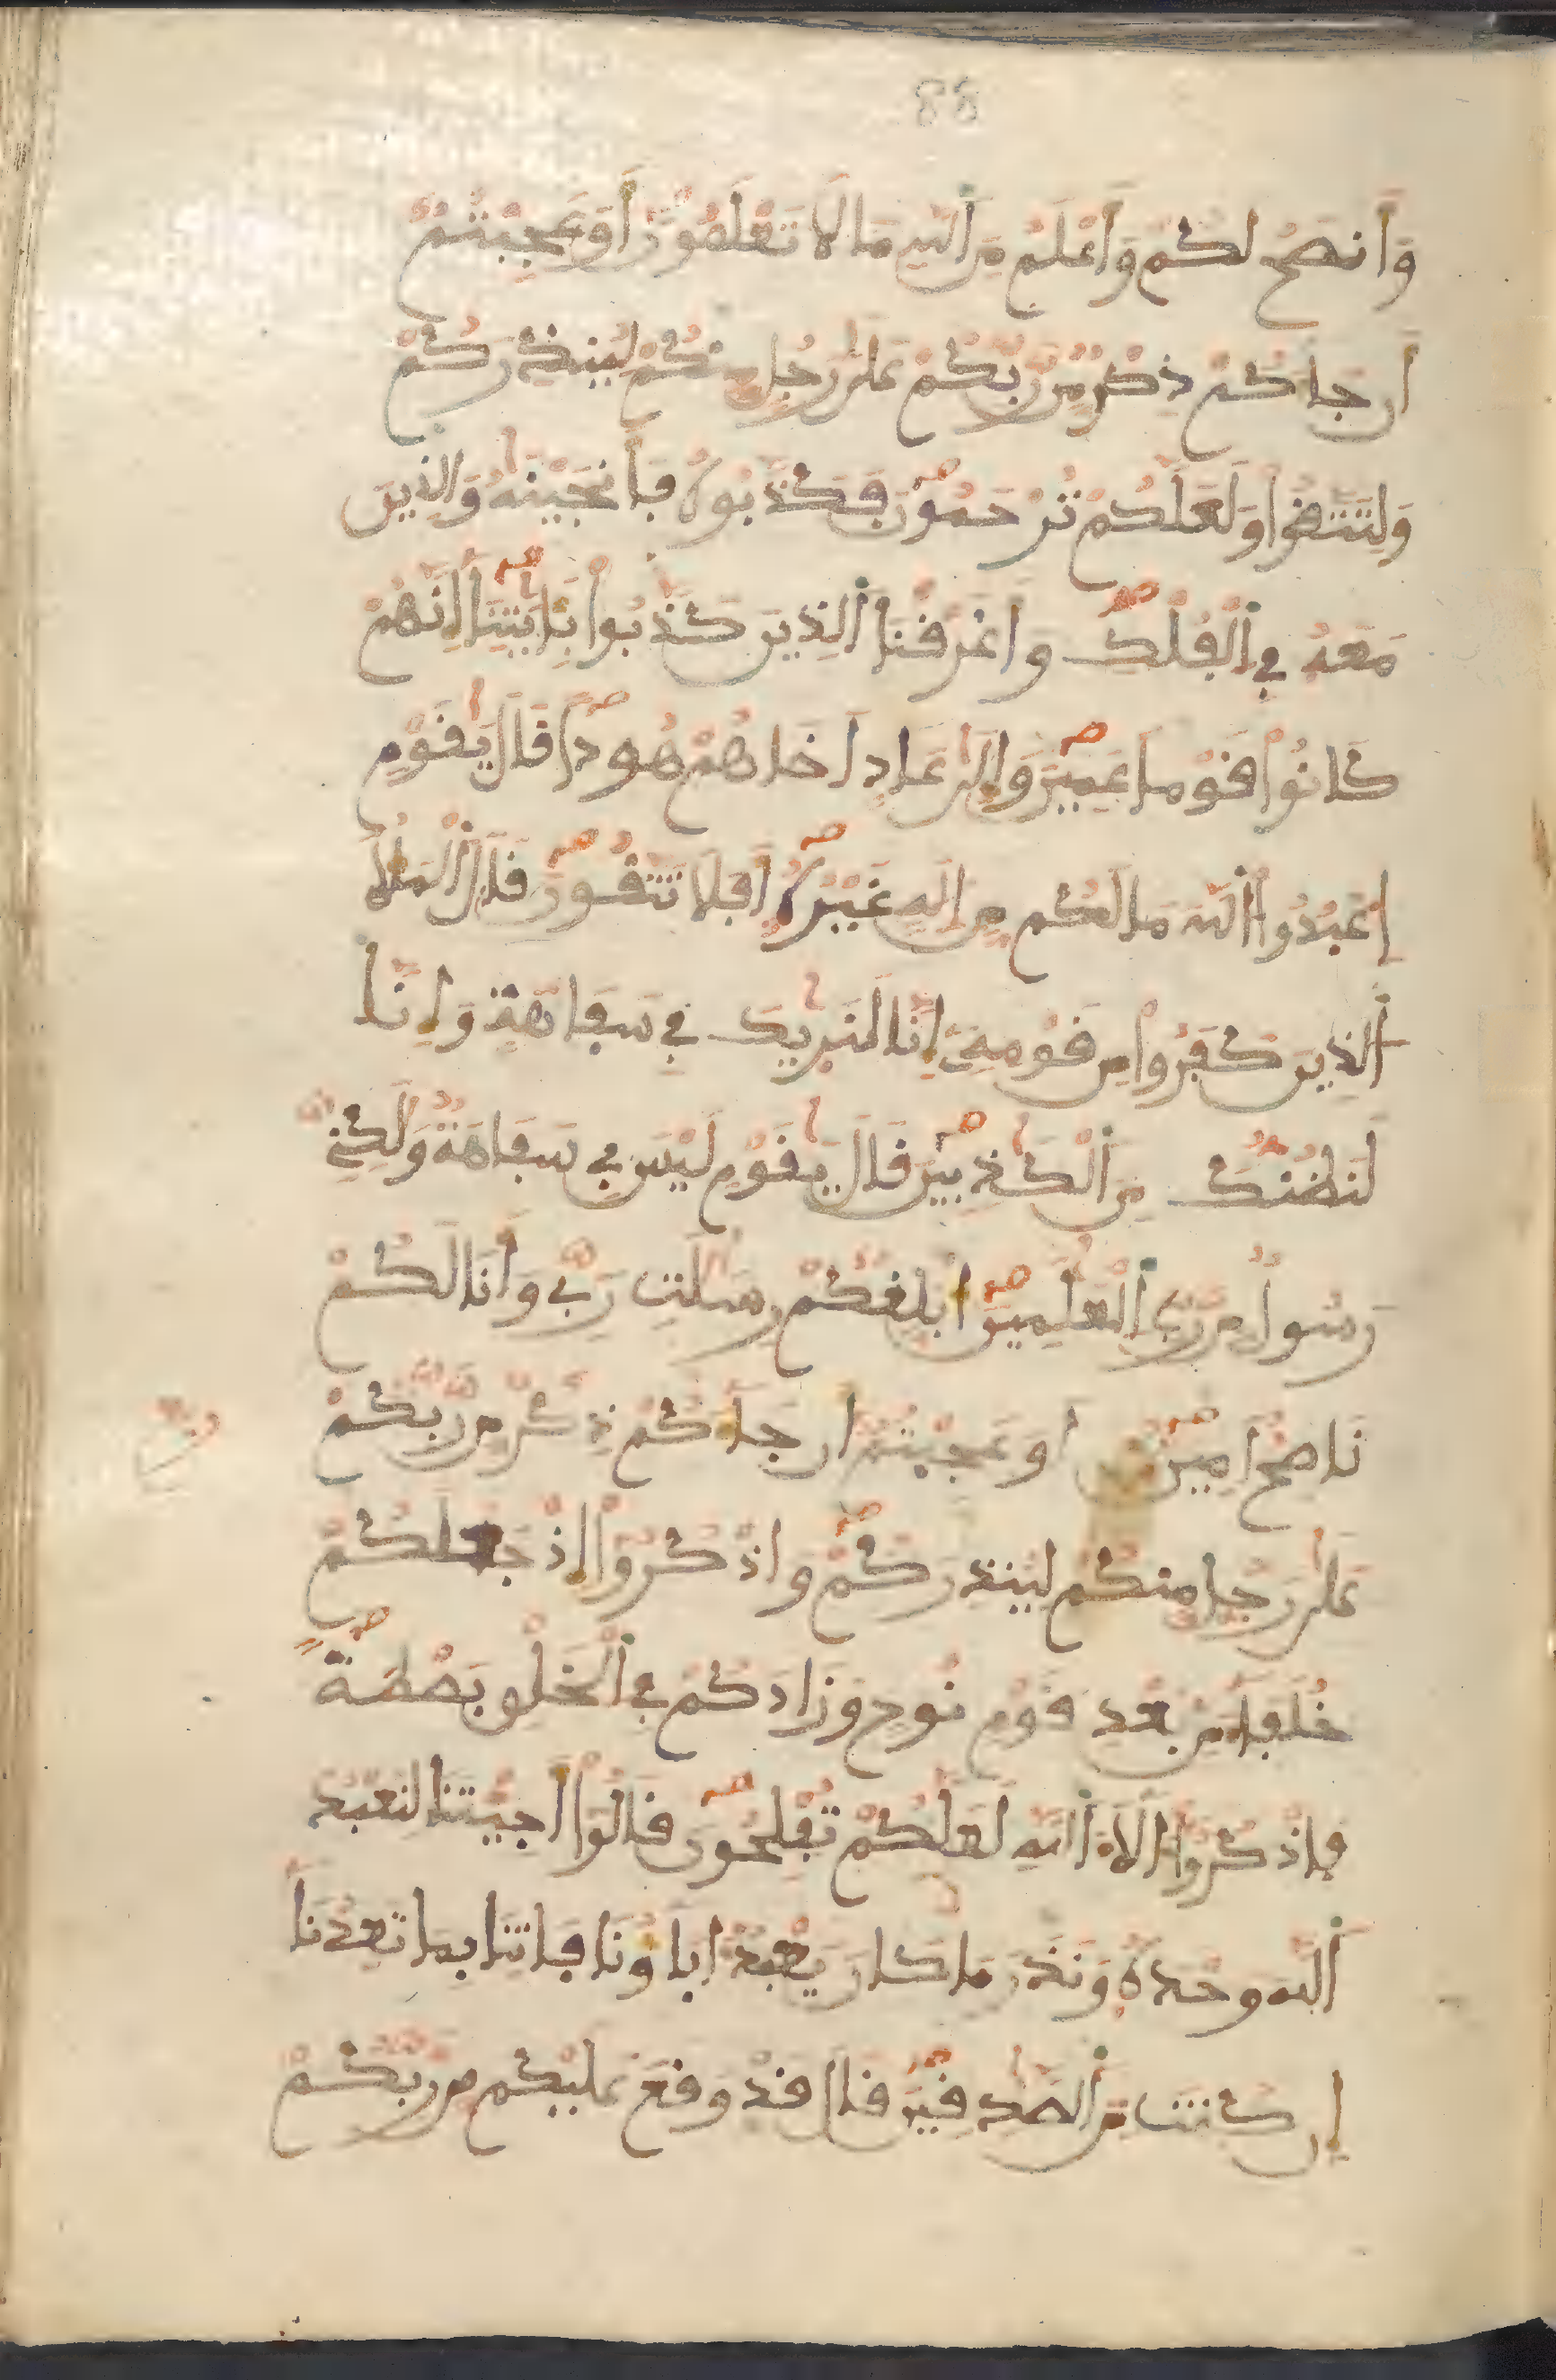 88
وَأَنصَحُ لَكُمْ وَأَعْلَمُ مِنَ ٱللَّهِ مَا لَا تَعْلَمُونَ أَوَعَجِبْتُمُۥ
أَن جَآءَكُمْ ذِكْرٌ مِّن رَّبِّكُمْ عَلَىٰ رَجُلٍ مِّنكُمْ لِيُنذِرَكُمْ
وَلِتَتَّقُوا۟ وَلَعَلَّكُمْ تُرْحَمُونَ ڢَكَذَّبُوهُ ڢَأَنجَيْنَٰهُ وَالذِينَ
مَعَهُۥ ڢِے اِ۬لْڢُلْكِ وَأَغْرَفْنَا اَ۬لذِينَ كَذَّبُوا۟ بِـَٔايَٰتِنَآ إِنَّهُمْ
كَانُوا۟ فَوْماً عَمِينَ وَإِلَىٰ عَادٍ اَخَاهُمْ هُوداً فَالَ يَٰفَوْمِ
اِ۟عْبُدُوا۟ اُ۬للَّهَ مَا لَكُم مِّنِ اِلَٰهٍ غَيْرُهُۥٓ أَڢَلَا تَتَّفُونَ فَالَ ٱلْمَلَأُ
ٱلذِينَ كَڢَرُوا۟ مِن فَوْمِهِۦٓ إِنَّا لَنَرَيٰكَ ڢِے سَڢَاهَةٍ وَإِنَّا
لَنَظُنُّكَ مِنَ ٱلْكَٰذِبِينَ فَالَ يَٰفَوْمِ لَيْسَ بِے سَڢَاهَةٌ وَلَٰكِنِّے
رَسُولٌ مِّن رَّبِّ ٱلْعَٰلَمِينَ أُبَلِّغُكُمْ رِسَٰلَٰتِ رَبِّے وَأَنَا لَكُمْ
نَاصِحٌ اَمِينٌ اَوَعَجِبْتُمُۥٓ أَن جَآءَكُمْ ذِكْرٌ مِّن رَّبِّكُمْ
عَلَىٰ رَجُلٍ مِّنكُمْ لِيُنذِرَكُمْ وَاذْكُرُوٓا۟ إِذْ جَعَلَكُمْ
خُلَڢَآءَ مِنۢ بَعْدِ فَوْمِ نُوحٍ وَزَادَكُمْ ڢِے اِ۬لْخَلْقِ بَصْطَةً
ڢَاذْكُرُوٓا۟ ءَالَآءَ اَ۬للَّهِ لَعَلَّكُمْ تُڢْلِحُونَ فَالُوٓا۟ أَجِئْتَنَا لِنَعْبُدَ
ٱللَّهَ وَحْدَهُۥ وَنَذَرَ مَا كَانَ يَعْبُدُ ءَابَآؤُنَا ڢَاتِنَا بِمَا تَعِدُنَآ
إِن كُنتَ مِنَ ٱلصَّٰدِفِينَ فَالَ فَدْ وَفَعَ عَلَيْكُم مِّن رَّبِّكُمْ